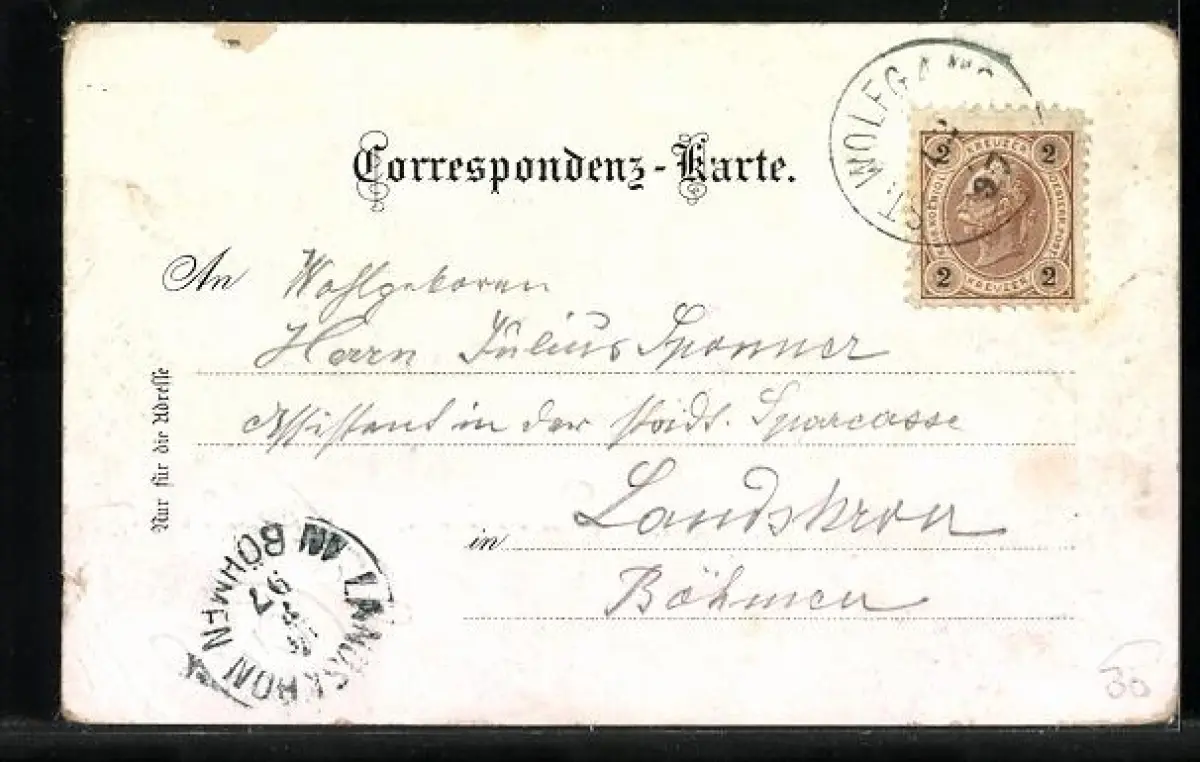 ST. WOLFGANG
97
Correspondenz-Karte.
2 KREUZER 2
KAIS. KOENIGL. OESTERR. POST
2 KREUZER 2
An Wohlgeboren
Herrn Julius Sponner
Assistent in der städt. Sparcasse
in Landskron
Böhmen
Nur für die Adresse
LANDSKRON IN BÖHMEN
97
30